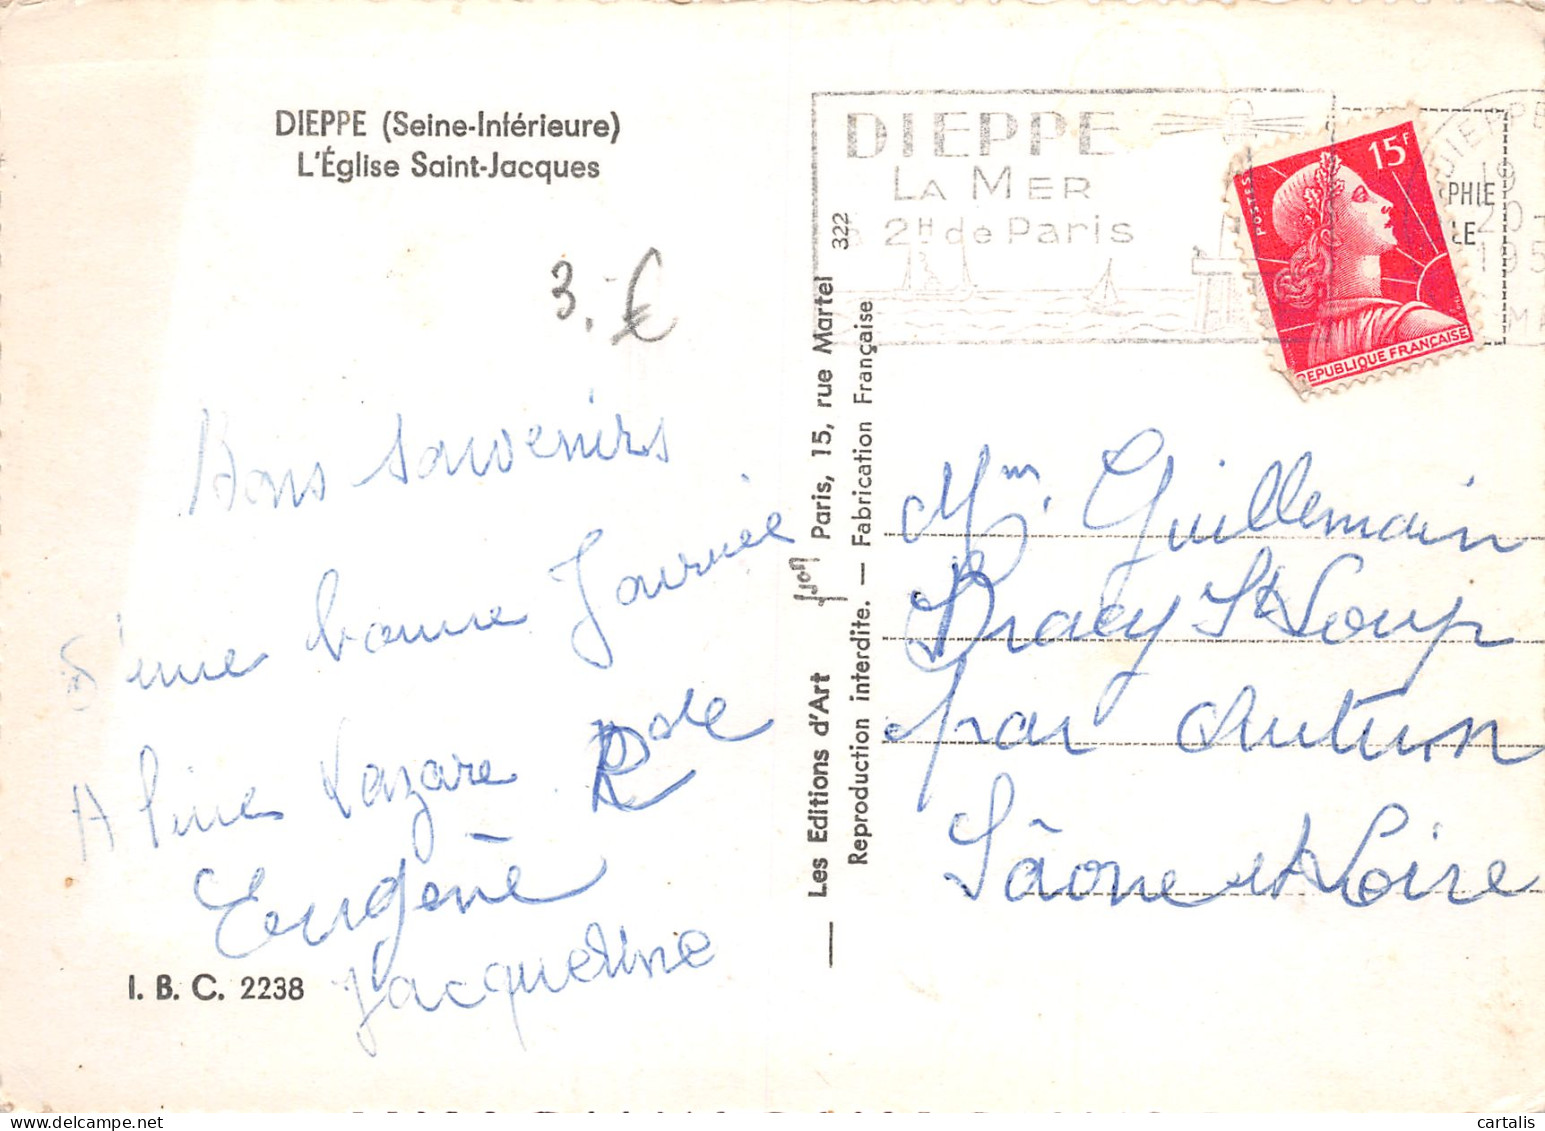 DIEPPE (Seine-Inférieure)
L'Église Saint-Jacques
3. €
Bons souvenirs
d'une bonne Journée
Aline Lazare Rose
Eugène
Jacqueline
I. B. C. 2238
Les Editions d'Art Paris, 15, rue Martel 322
Reproduction interdite. — Fabrication Française
DIEPPE
LA MER
2H de Paris
DIEPPE
19
20
195
PHIE
LE
POSTES
15F
REPUBLIQUE FRANÇAISE
Mm. Guillemain
Dracy St Loup
par Autun
Saône et Loire
cartalis